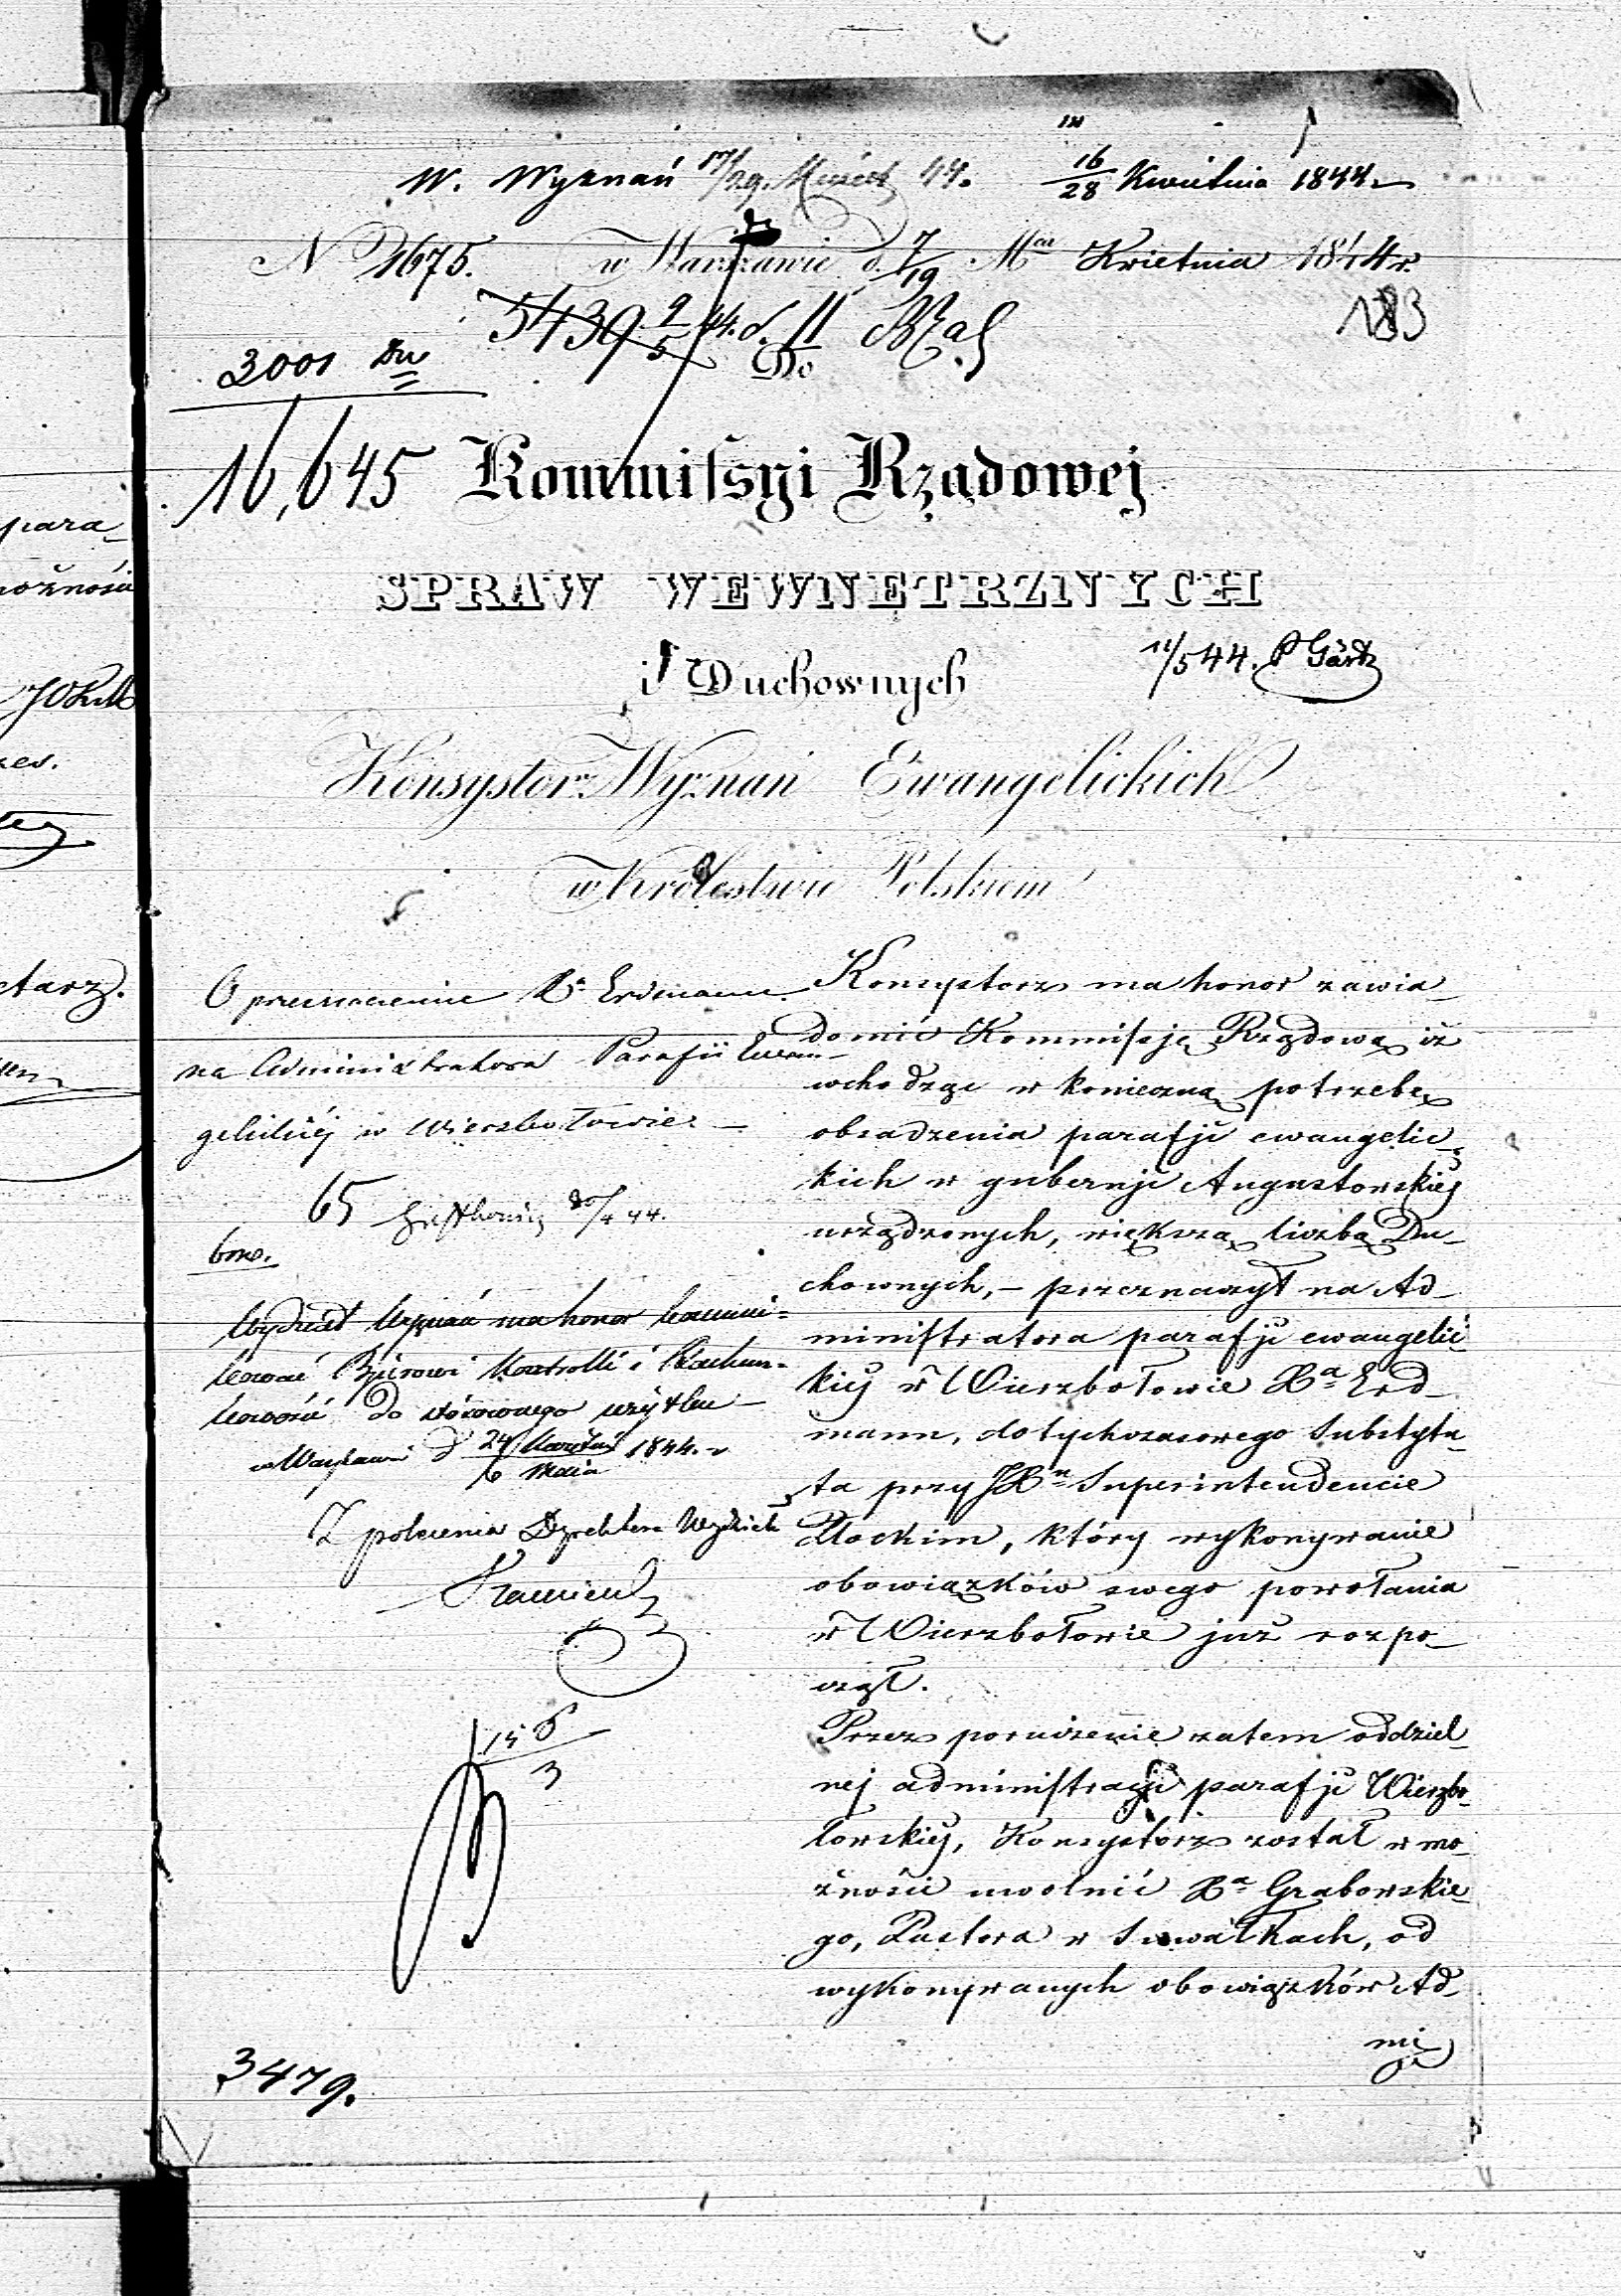 W. Wyznań 17/29. 44. 16/28 Kwietnia 1844 r.
N 1675. w Warszawie d. 7/19 Mca Kwietnia 1844 r.
5439 9/5 44. d. 11
183
3001 Du
Do
16,645 Kommissyi Rządowej
SPRAW WEWNĘTRZNYCH
i Duchownych
11/5 44.
Konsystorz Wyznań Ewangelickich
w Królestwie Polskiem
O przeznaczenie Xa Erdmann
na Administratora Parafii Ewan-
gelickiéj w Wierzbołowie
65 30/4 44.
Wydział Wyznań ma honor kommuni=
kować Biórowi Kontrolli i Rachun-
kowości do stósownego użytku
w Warszawie d 24 Kwietnia / 6 Maia 1844. r
Z polecenia Dyrektora Wydziału
156
3
3479.
Konsystorz ma honor zawia-
domić Kommissję Rządową iż
wchodząc w konieczną potrzebę
obsadzenia parafji ewangelic-
kich w gubernji Augustowskiéj
urządzonych, większą liczbą Du-
chownych, – przeznaczył na Ad-
ministratora parafji ewangelic-
kiéj w Wierzbołowie Xa Erd-
mann, dotychczasowego Substytu-
ta przy JXn Superintendencie
Płockim, który wykonywanie
obowiązków swego powołania
w Wierzbołowie już rozpo-
czął.
Przez poruczenie zatem oddziel-
nej administracji parafji Wierzbo-
łowskiéj, Konsystorz został w mo-
żności uwolnić Xa Grabowskie-
go, Pastora w Suwałkach, od
wykonywanych obowiązków Ad-
mi
para-
ożności
ctarz.